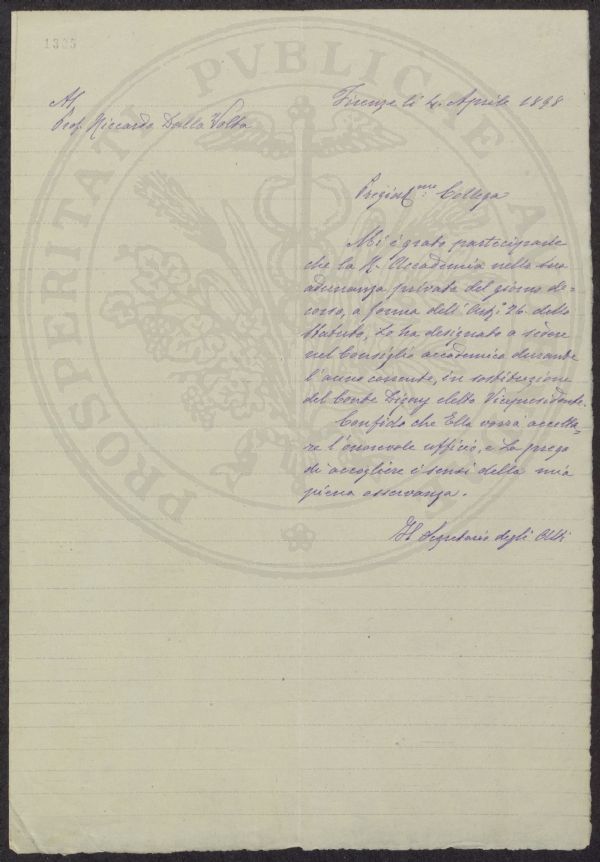 1325
Al
Prof. Riccardo Dalla Volta
Firenze li 4. Aprile 1898
Pregiat.mo Collega
Mi è grato partecipare
che la R. Accademia nella sua
adunanza privata del giorno de=
corso, a forma dell'Art.° 26. dello
Statuto, La ha designato a sedere
nel Consiglio accademico durante
l'anno corrente, in sostituzione
del Conte Digny eletto Vicepresidente.
Confido che Ella vorrà accetta=
re l'onorevole ufficio, e La prego
di accogliere i sensi della mia
piena osservanza.
Il Segretario degli Atti
PROSPERITATI PVBLICAE A